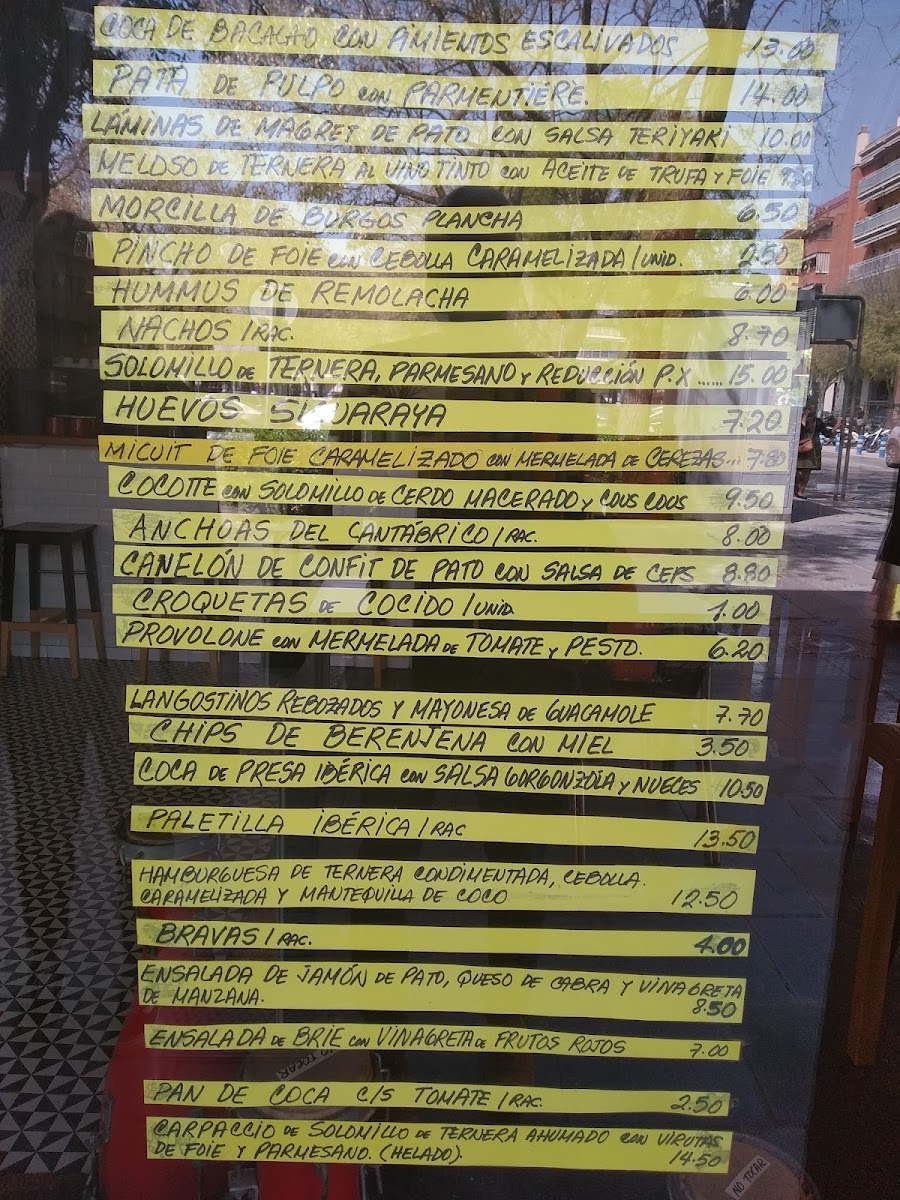 COCA DE BACALAO CON PIMIENTOS ESCALIVADOS 13.00
PATA DE PULPO CON PARMENTIERE. 14.00
LÁMINAS DE MAGRET DE PATO CON SALSA TERIYAKI 10.00
MELOSO DE TERNERA AL VINO TINTO CON ACEITE DE TRUFA Y FOIE
MORCILLA DE BURGOS PLANCHA 6.50
PINCHO DE FOIE CON CEBOLLA CARAMELIZADA / UNID. 2.50
HUMMUS DE REMOLACHA 6.00
NACHOS / RAC. 8.70
SOLOMILLO DE TERNERA, PARMESANO Y REDUCCIÓN P.X ...... 15.00
HUEVOS 7.20
MICUIT DE FOIE CARAMELIZADO CON MERMELADA DE CEREZAS... 7.80
COCOTTE CON SOLOMILLO DE CERDO MACERADO Y COUS COUS 9.50
ANCHOAS DEL CANTÁBRICO / RAC. 8.00
CANELÓN DE CONFIT DE PATO CON SALSA DE CEPS 8.80
CROQUETAS DE COCIDO / UNID. 1.00
PROVOLONE CON MERMELADA DE TOMATE Y PESTO. 6.20
LANGOSTINOS REBOZADOS Y MAYONESA DE GUACAMOLE 7.70
CHIPS DE BERENJENA CON MIEL 3.50
COCA DE PRESA IBÉRICA CON SALSA GORGONZOLA Y NUECES 10.50
PALETILLA IBÉRICA / RAC 13.50
HAMBURGUESA DE TERNERA CONDIMENTADA, CEBOLLA.
CARAMELIZADA Y MANTEQUILLA DE COCO 12.50
BRAVAS / RAC. 4.00
ENSALADA DE JAMÓN DE PATO, QUESO DE CABRA Y VINAGRETA
DE MANZANA. 8.50
ENSALADA DE BRIE CON VINAGRETA DE FRUTOS ROJOS 7.00
NO TOCAR
PAN DE COCA C/S TOMATE / RAC. 2.50
CARPACCIO DE SOLOMILLO DE TERNERA AHUMADO CON VIRUTAS
DE FOIE Y PARMESANO. (HELADO). 14.50
NO TOCAR